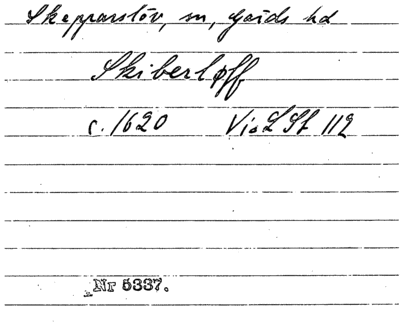 Skepparslöv, sn, Gärds hd
Skiberløff
c. 1620 Vi&LSt 112
Nr 5337.